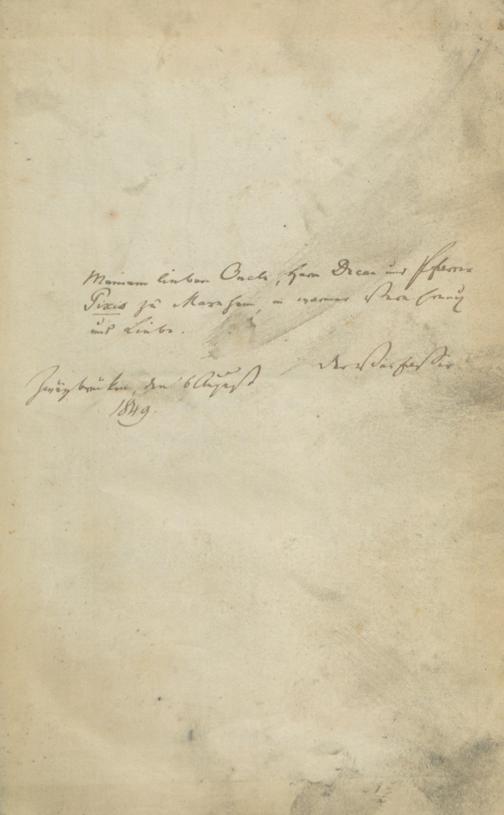 Meinem lieben Onkel, Herrn Decan und Pfarrer
Pixis zu Marnheim, in warmer Verehrung
und Liebe.
der Verfasser
Zweybrücken, den 6 August
1849.